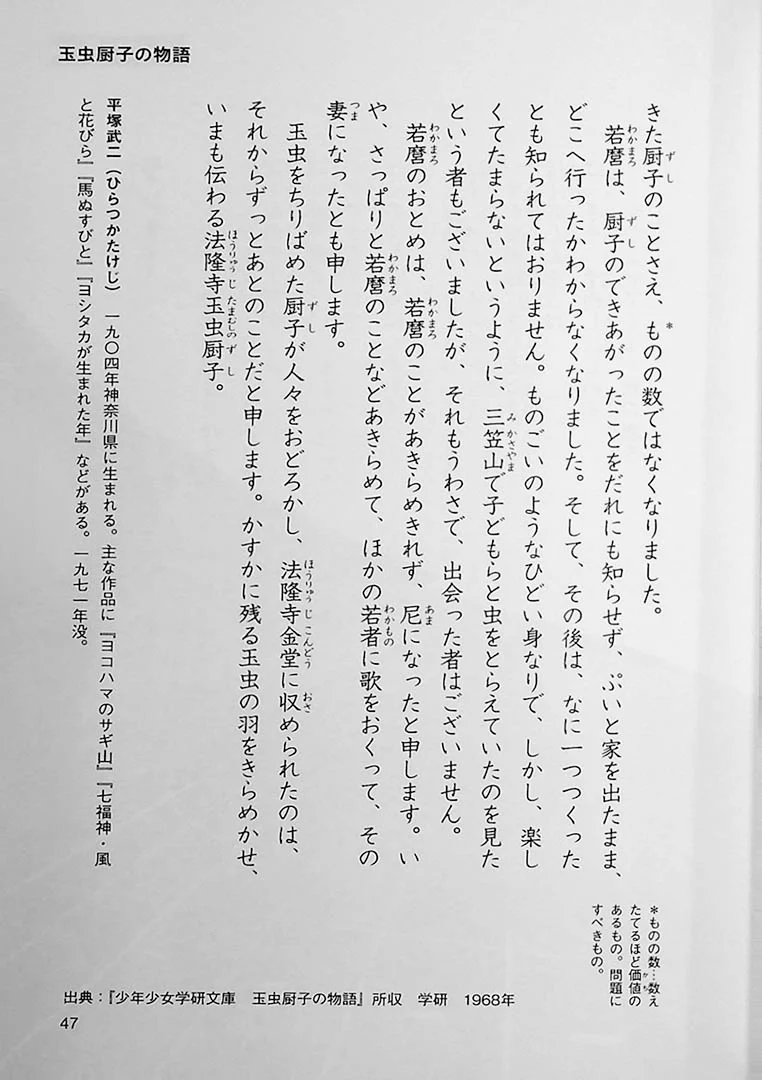 玉虫厨子の物語
きた厨子のことさえ、*ものの数ではなくなりました。
若麿は、厨子のできあがったことをだれにも知らせず、ぷいと家を出たまま、
どこへ行ったかわからなくなりました。そして、その後は、なに一つつくった
とも知られてはおりません。ものごいのようなひどい身なりで、しかし、楽し
くてたまらないというように、三笠山で子どもらと虫をとらえていたのを見た
という者もございましたが、それもうわさで、出会った者はございません。
若麿のおとめは、若麿のことがあきらめきれず、尼になったと申します。い
や、さっぱりと若麿のことなどあきらめて、ほかの若者に歌をおくって、その
妻になったとも申します。
玉虫をちりばめた厨子が人々をおどろかし、法隆寺金堂に収められたのは、
それからずっとあとのことだと申します。かすかに残る玉虫の羽をきらめかせ、
いまも伝わる法隆寺玉虫厨子。
平塚武二（ひらつかたけじ）　一九〇四年神奈川県に生まれる。主な作品に『ヨコハマのサギ山』『七福神・風
と花びら』『馬ぬすびと』『ヨシタカが生まれた年』などがある。一九七一年没。
*ものの数…数え
たてるほど価値の
あるもの。問題に
すべきもの。
出典：『少年少女学研文庫　玉虫厨子の物語』所収　学研　1968年
47